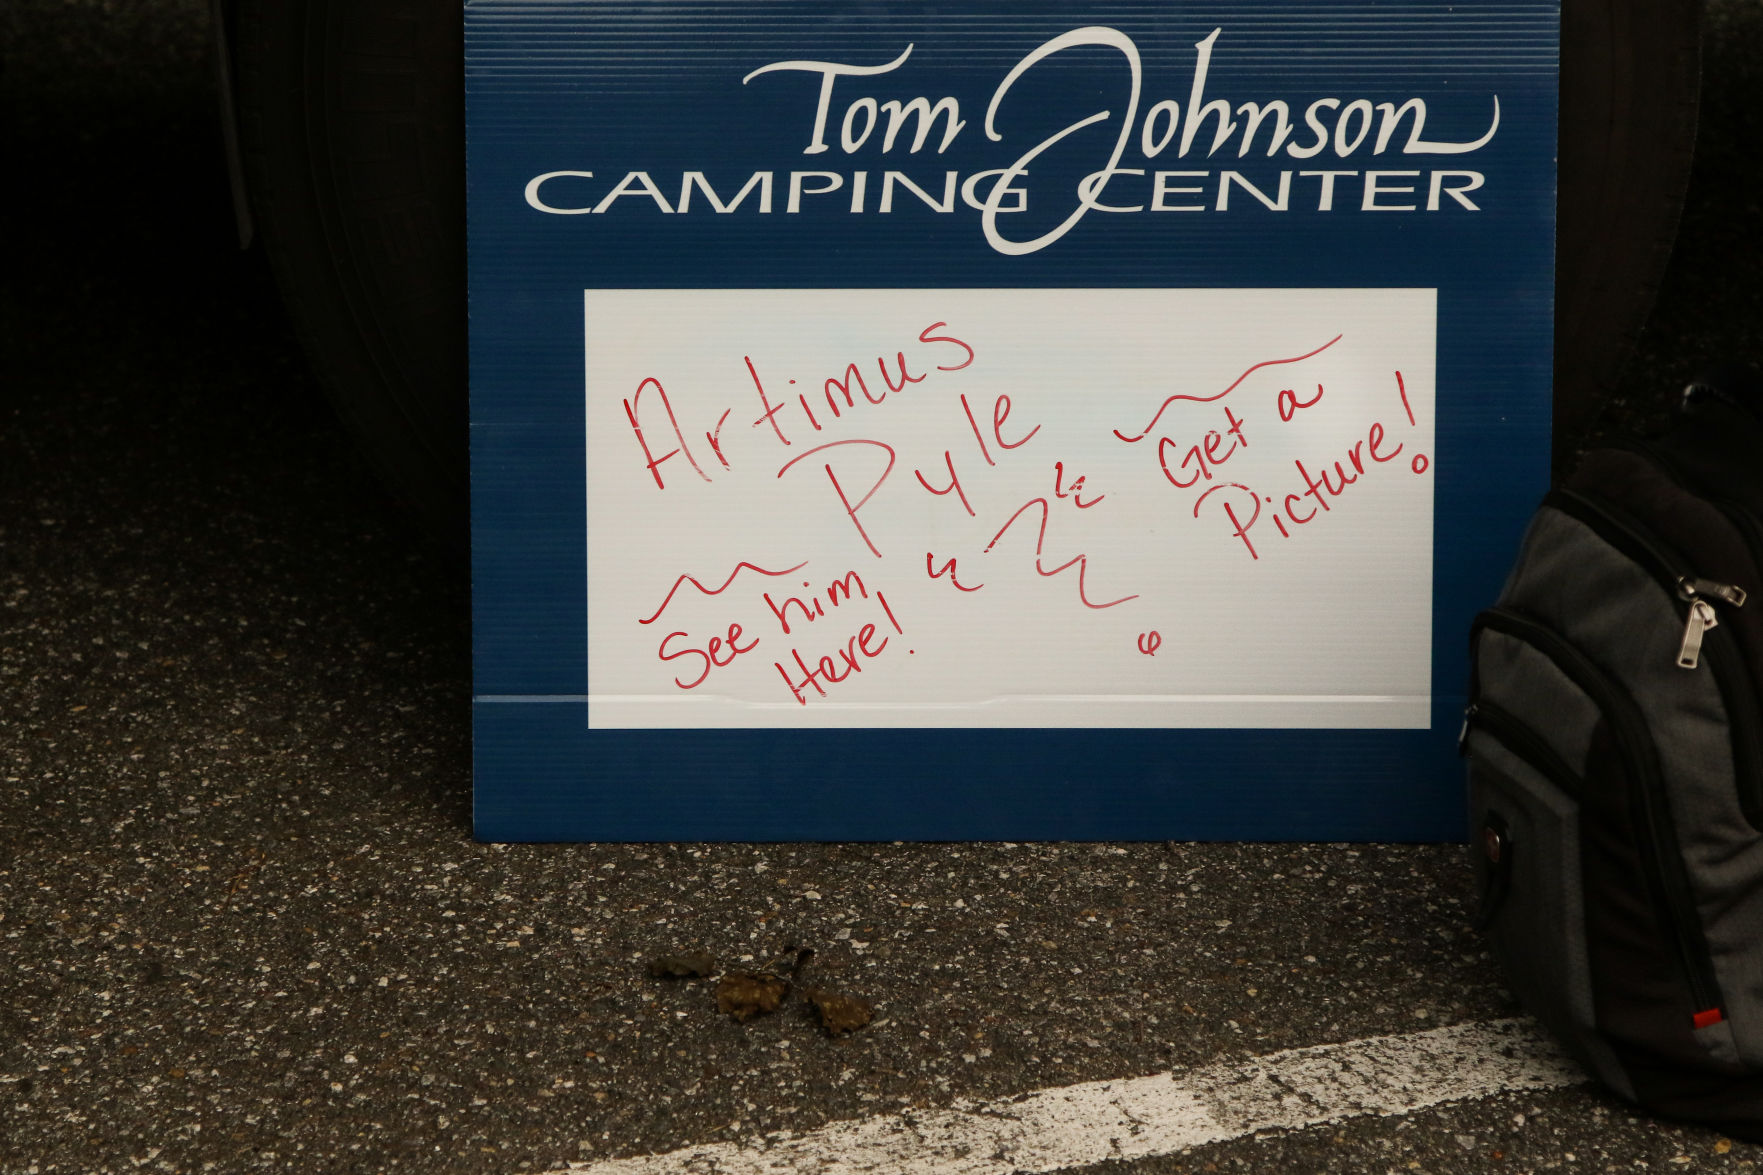 Tom Johnson
CAMPING CENTER
Artimus
Pyle
Get a
Picture!
See him
Here!